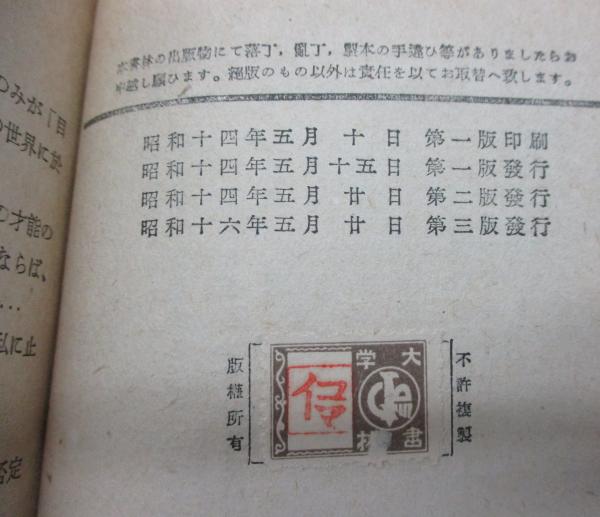 本書林の出版物にて落丁，亂丁，製本の手違ひ等がありましたらお
申越し願ひます。絕版のもの以外は責任を以てお取替へ致します。
昭和十四年五月十日 第一版印刷
昭和十四年五月十五日 第一版發行
昭和十四年五月廿日 第二版發行
昭和十六年五月廿日 第三版發行
不許複製
大学書林
版權所有
のみが「目
の世界に於
の才能の
ならば、
…
私に止
否定